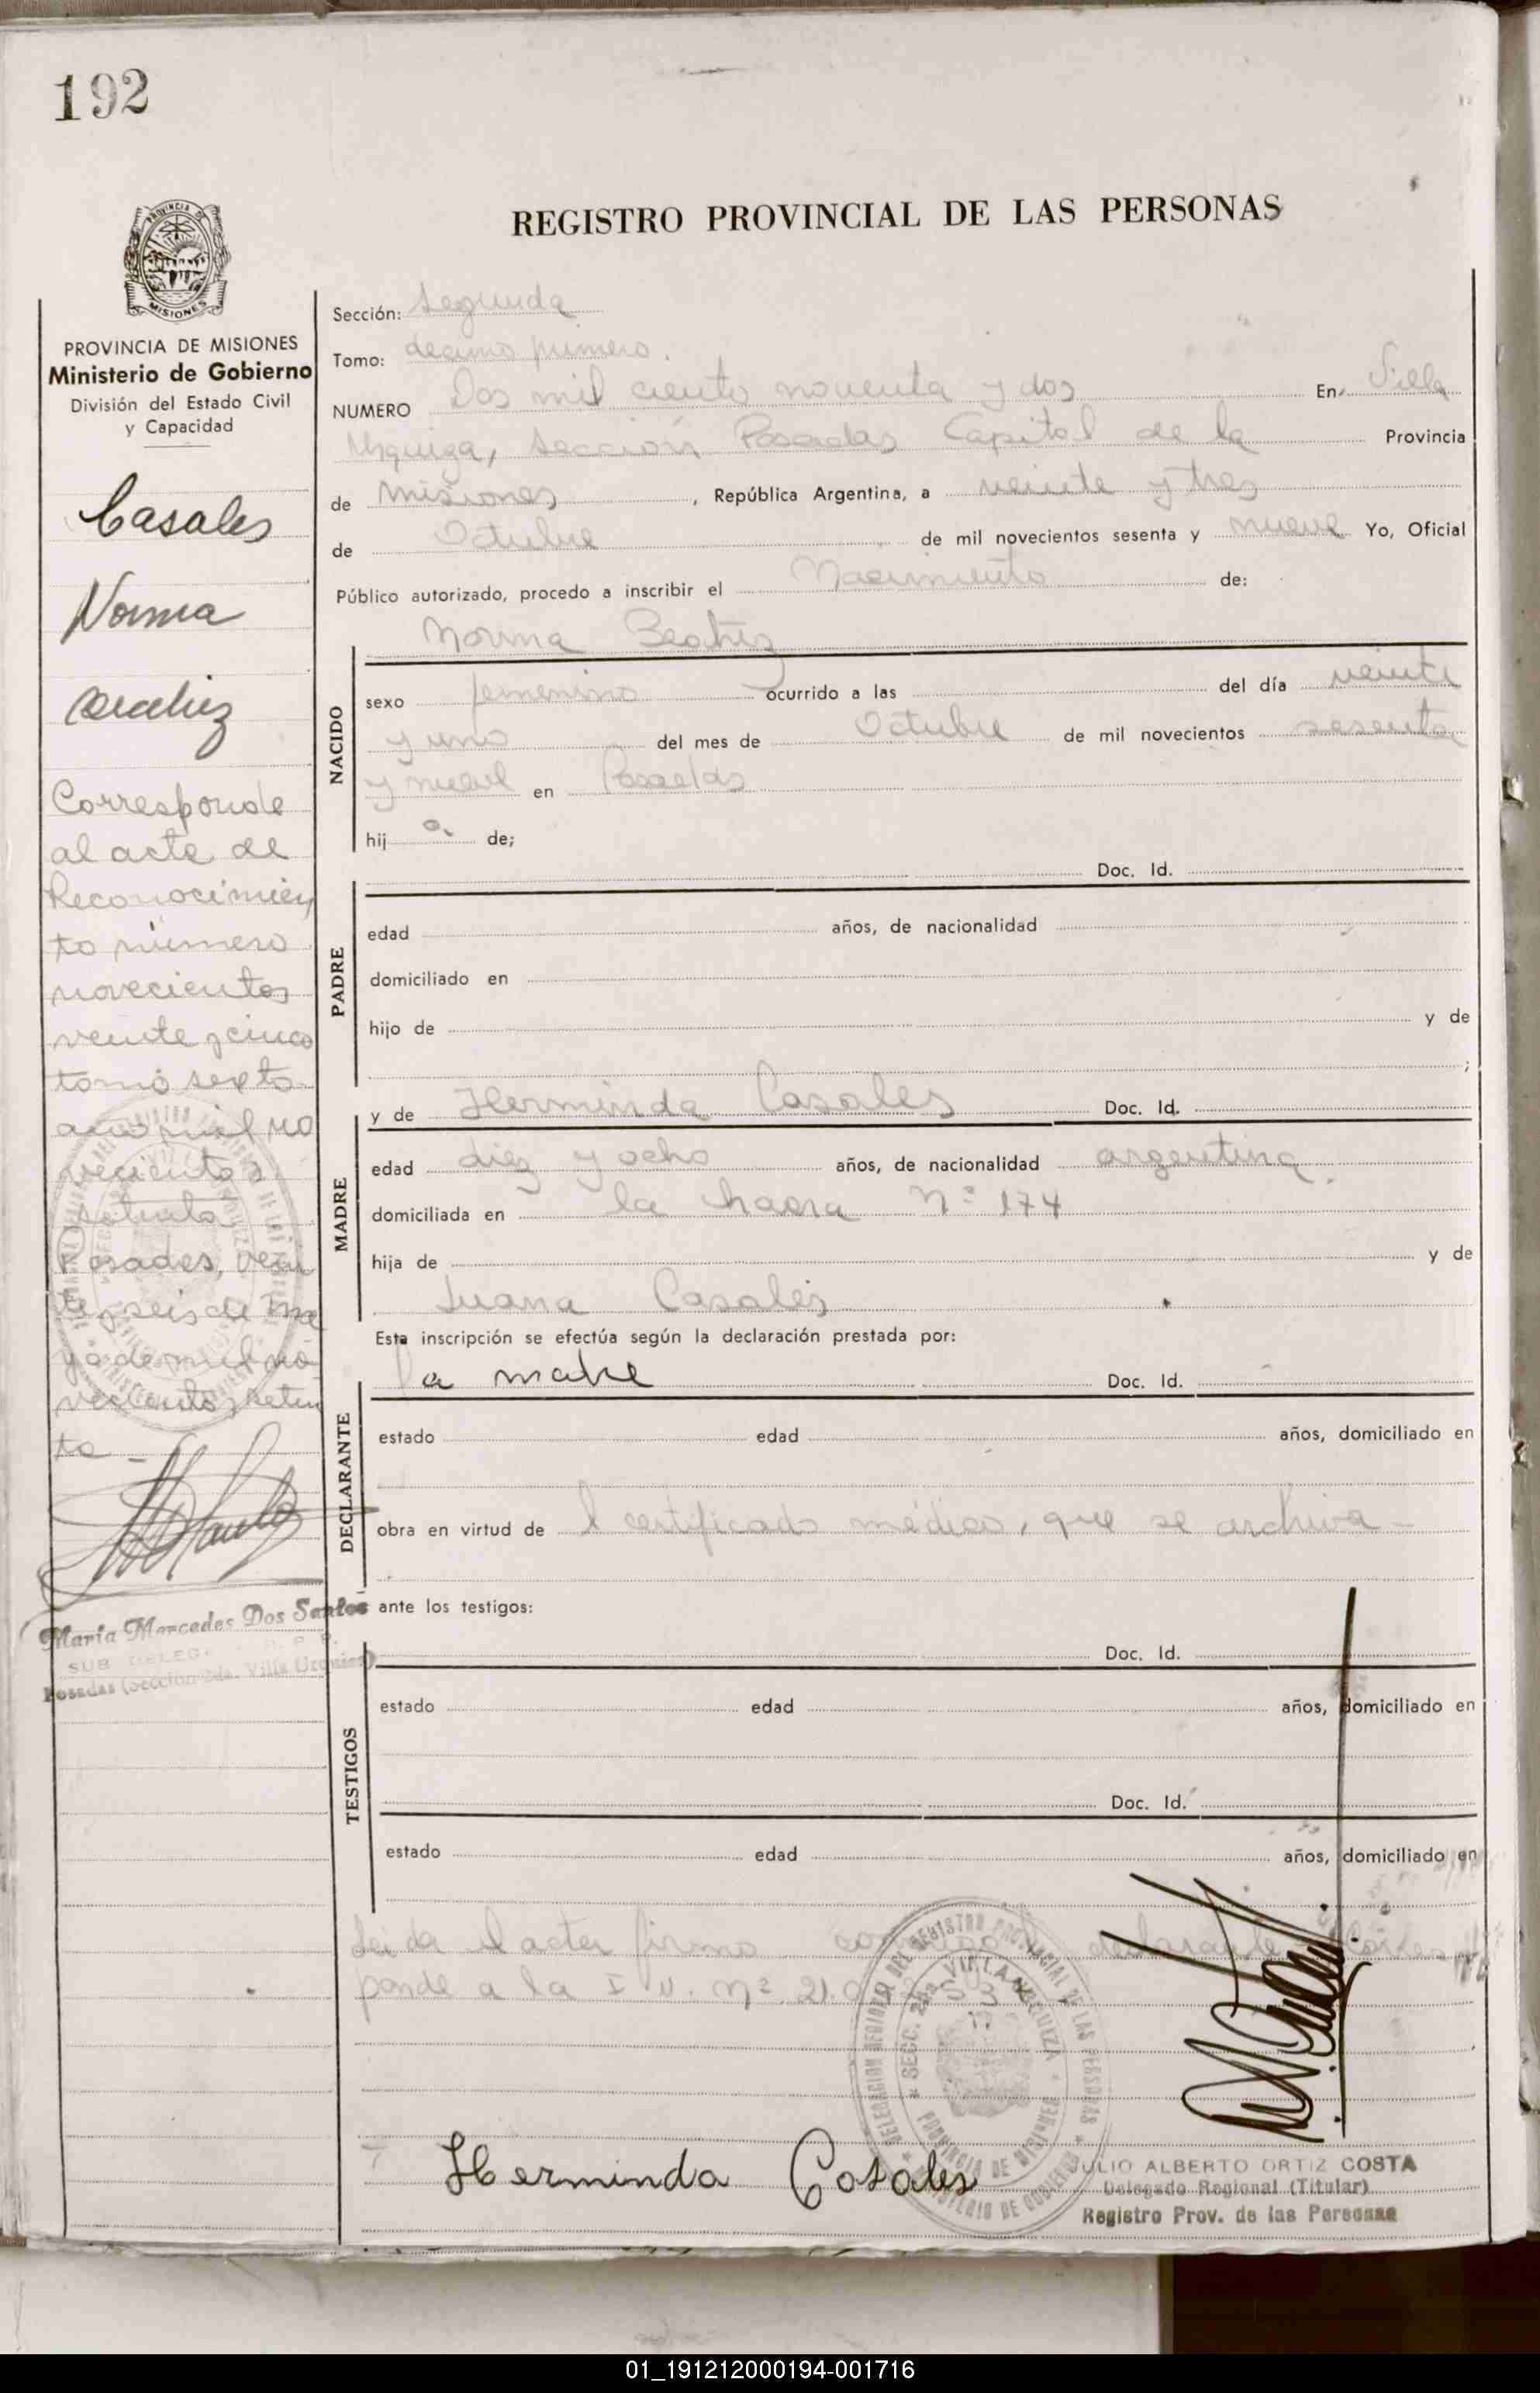 192
PROVINCIA DE
MISIONES
PROVINCIA DE MISIONES
Ministerio de Gobierno
División del Estado Civil
y Capacidad
Casales
Norma
Beatriz
Corresponde
al acta de
Reconocimien
to número
novecientos
veinte y cinco
tomo sexto
año mil no
vecientos
setenta
Posadas, vein
te y seis de Ma
yo de mil no
vecientos seten
ta
María Mercedes Dos Santos
SUB DELEG. R. P. P.
Posadas (Sección 2da. Villa Urquiza)
REGISTRO PROVINCIAL DE LAS PERSONAS
Sección: Segunda
Tomo: decimo primero.
NUMERO Dos mil ciento noventa y dos En Villa
Urquiza, Sección Posadas Capital de la Provincia
de Misiones, República Argentina, a veinte y tres
de Octubre de mil novecientos sesenta y nueve Yo, Oficial
Público autorizado, procedo a inscribir el Nacimiento de:
Norma Beatriz
NACIDO
sexo femenino ocurrido a las del día veinte
y uno del mes de Octubre de mil novecientos sesenta
y nueve en Posadas
hij a de;
Doc. Id.
PADRE
edad años, de nacionalidad
domiciliado en
hijo de y de
;
MADRE
y de Herminda Casales Doc. Id.
edad diez y ocho años, de nacionalidad argentina
domiciliada en la chacra Nº 174
hija de y de
Juana Casales
Esta inscripción se efectúa según la declaración prestada por:
la madre Doc. Id.
DECLARANTE
estado edad años, domiciliado en
obra en virtud de l certificado médico, que se archiva -
ante los testigos:
Doc. Id.
TESTIGOS
estado edad años, domiciliado en
Doc. Id.
estado edad años, domiciliado en
Leida el acta firma conmigo declarante Corres
ponde a la I N. Nº 21.0
DELEGACION REGIONAL DEL REGISTRO PROVINCIAL DE LAS PERSONAS
SECC. 2da. VILLA URQUIZA
PROVINCIA DE MISIONES
MINISTERIO DE GOBIERNO
Herminda Casales
JULIO ALBERTO ORTIZ COSTA
Delegado Regional (Titular)
Registro Prov. de las Personas
01_191212000194-001716